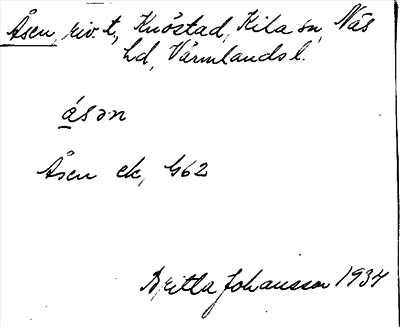 Åsen, riv. t, Knöstad, Kila sn, Näs
hd, Värmlands l.
åsən
Åsen ek, G62
Britta Johansson 1934